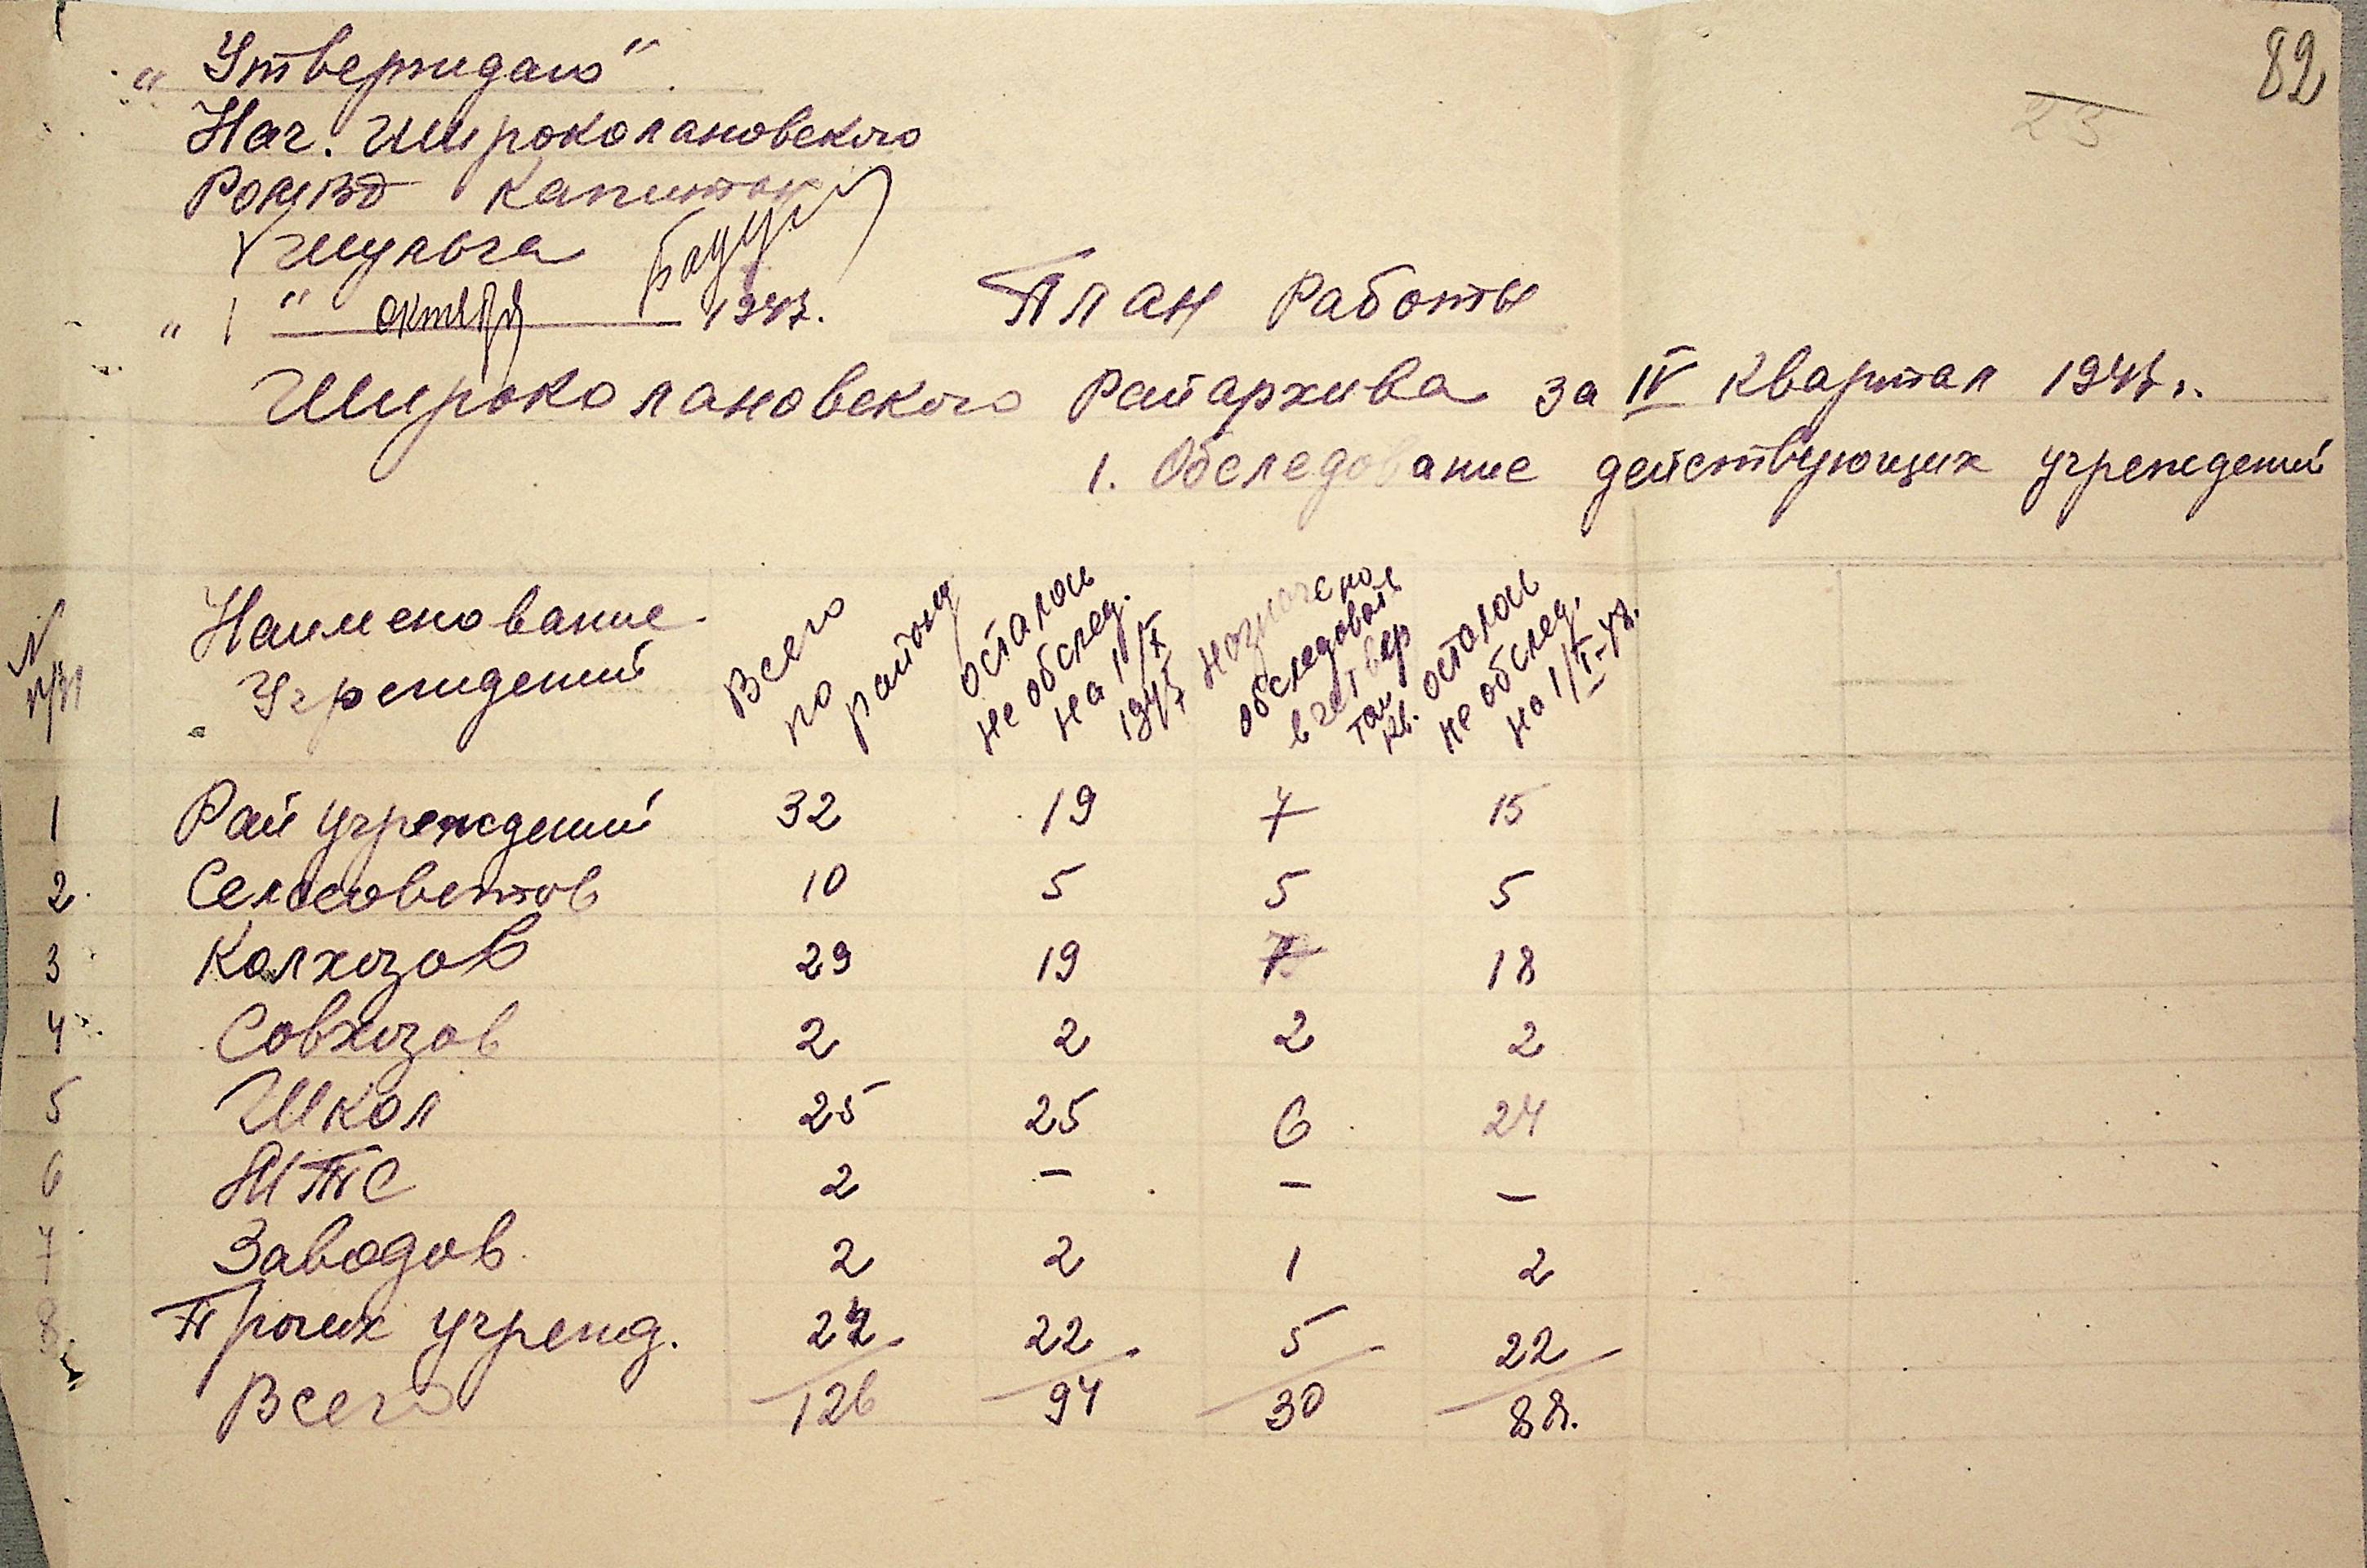 82
23
„ Утверждаю "
Нач. Широколановского
РОМВД капитан
Шульга
„ 1 " октября 1947.
План Работы
Широколановского Райархива за IV квартал 1947 г.
1. Обследование действующих учреждений
N п/п Наименование Учреждений Всего по району осталось не обслед. на 1/X 1947 Назначено обследовать в четвер том кв. осталось не обслед. на 1/I-48.
1 Рай учреждений 32 19 7 15
2. Сельсоветов 10 5 5 5
3 Колхозов 29 19 18
4 Совхозов 2 2 2 2
5 Школ 25 25 6 24
6 МТС 2 – – –
7 Заводов 2 2 1 2
8. Прочих учрежд. 24 22 5 22
Всего 126 94 30 88.